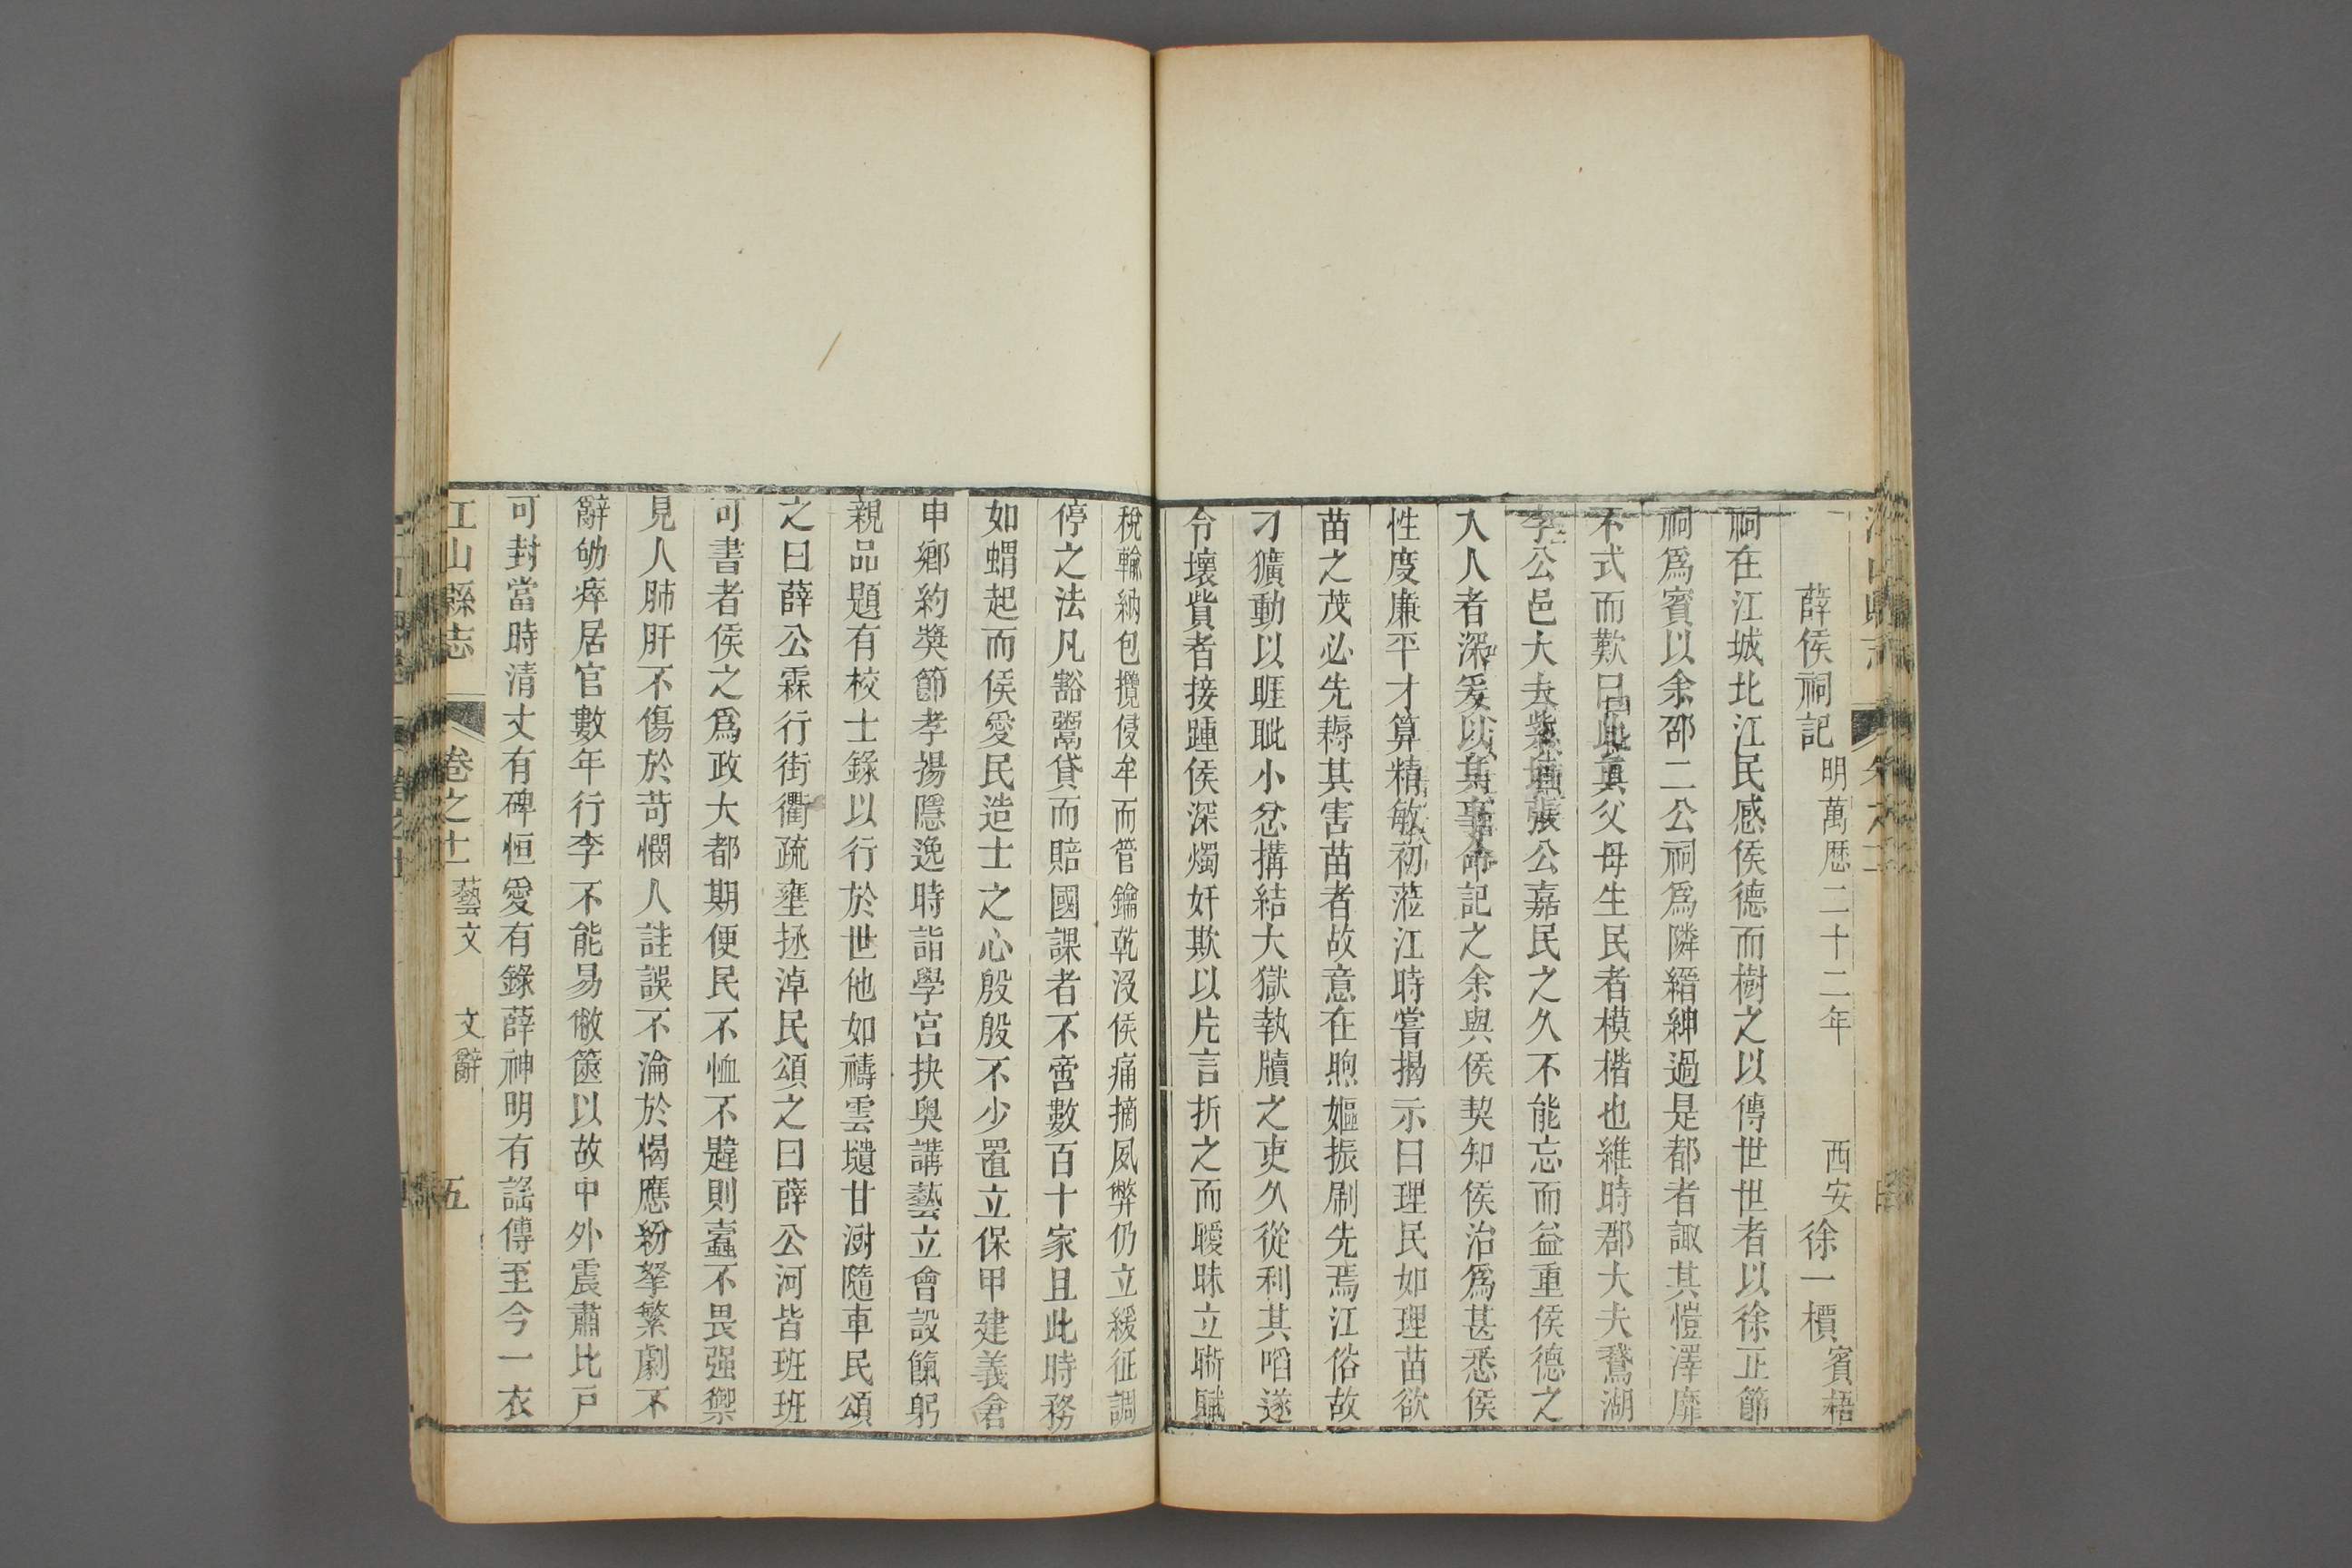 薛侯祠記明萬歷二十二年 西安徐一檟賓梧
祠在江城北江民感侯德而樹之以傳世世者以徐正節
祠爲賓以余邵二公祠爲隣縉紳過是都者諏其愷澤靡
不式而歎曰此真父母生民者模楷也維時郡大夫鵞湖
李公邑大夫張公嘉民之久不能忘而益重侯德之
入人者深爰以其事命記之余與侯契知侯治爲甚悉侯
性度廉平才算精敏初蒞江時嘗揭示曰理民如理苗欲
苗之茂必先耨其害苗者故意在煦嫗振刷先焉江俗故
刁獷動以睚眦小忿搆結大獄執牘之吏久從利其啗遂
令壞貲者接踵侯深燭奸欺以片言折之而曖昧立晰賦
稅輸納包攬侵牟而管鑰乾沒侯痛摘夙弊仍立緩征調
停之法凡豁鬻貸而賠國課者不啻數百十家且此時務
如蝟起而侯愛民造士之心殷殷不少置立保甲建義倉
申鄉約獎節孝揚隱逸時詣學宮抉奥講藝立會設餼躬
親品題有校士錄以行於世他如禱雲墻甘澍隨車民頌
之曰薛公霖行街衢疏壅拯淖民頌之曰薛公河皆班班
可書者侯之爲政大都期便民不恤不韙則蠹不畏强禦
見人肺肝不傷於苛憫人詿誤不淪於愒應紛拏繁劇不
辭劬瘁居官數年行李不能易敝篋以故中外震肅比戸
可封當時清丈有碑恒愛有錄薛神明有謡傳至今一衣
江山縣志 卷之十一藝文 文辭 五